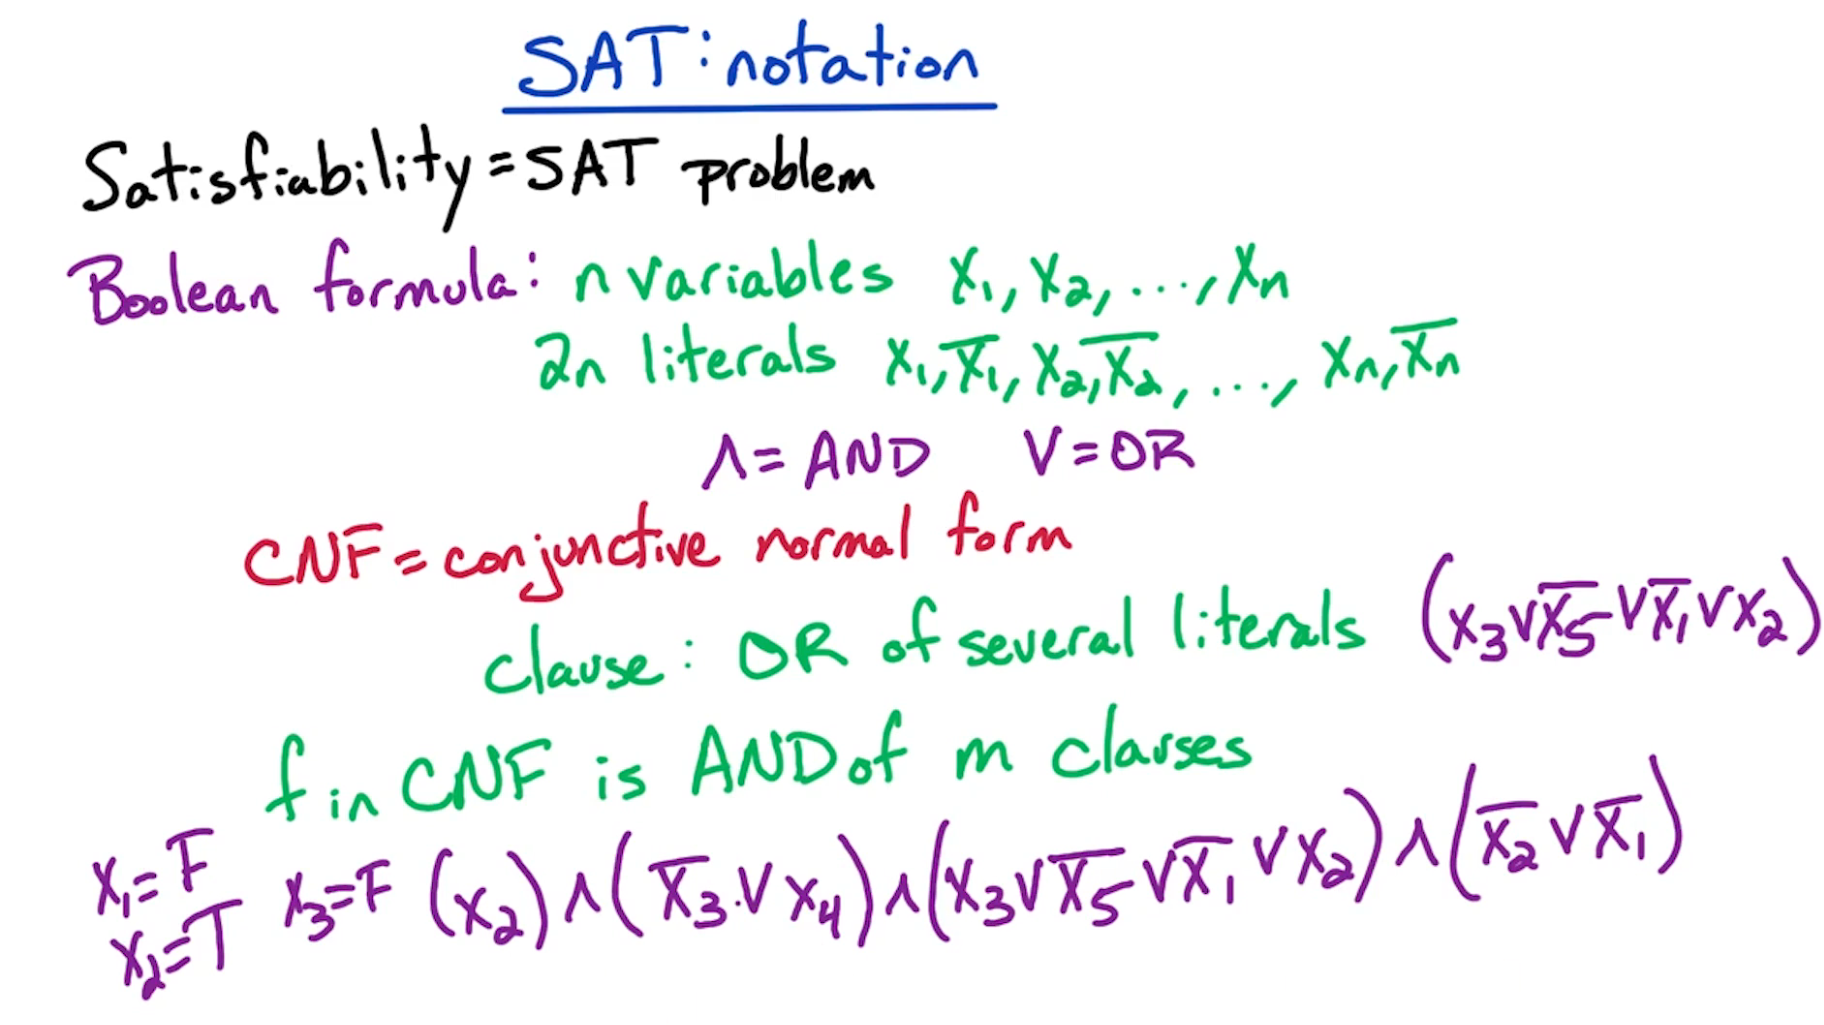 SAT: notation
Satisfiability = SAT problem
Boolean formula: n variables x₁, x₂, ..., xₙ
2n literals x₁, x̅₁, x₂, x̅₂, ..., xₙ, x̅ₙ
∧ = AND ∨ = OR
CNF = conjunctive normal form
clause: OR of several literals (x₃ ∨ x̅₅ ∨ x̅₁ ∨ x₂)
f in CNF is AND of m clauses
x₁ = F
x₂ = T x₃ = F (x₂) ∧ (x̅₃ ∨ x₄) ∧ (x₃ ∨ x̅₅ ∨ x̅₁ ∨ x₂) ∧ (x̅₂ ∨ x̅₁)